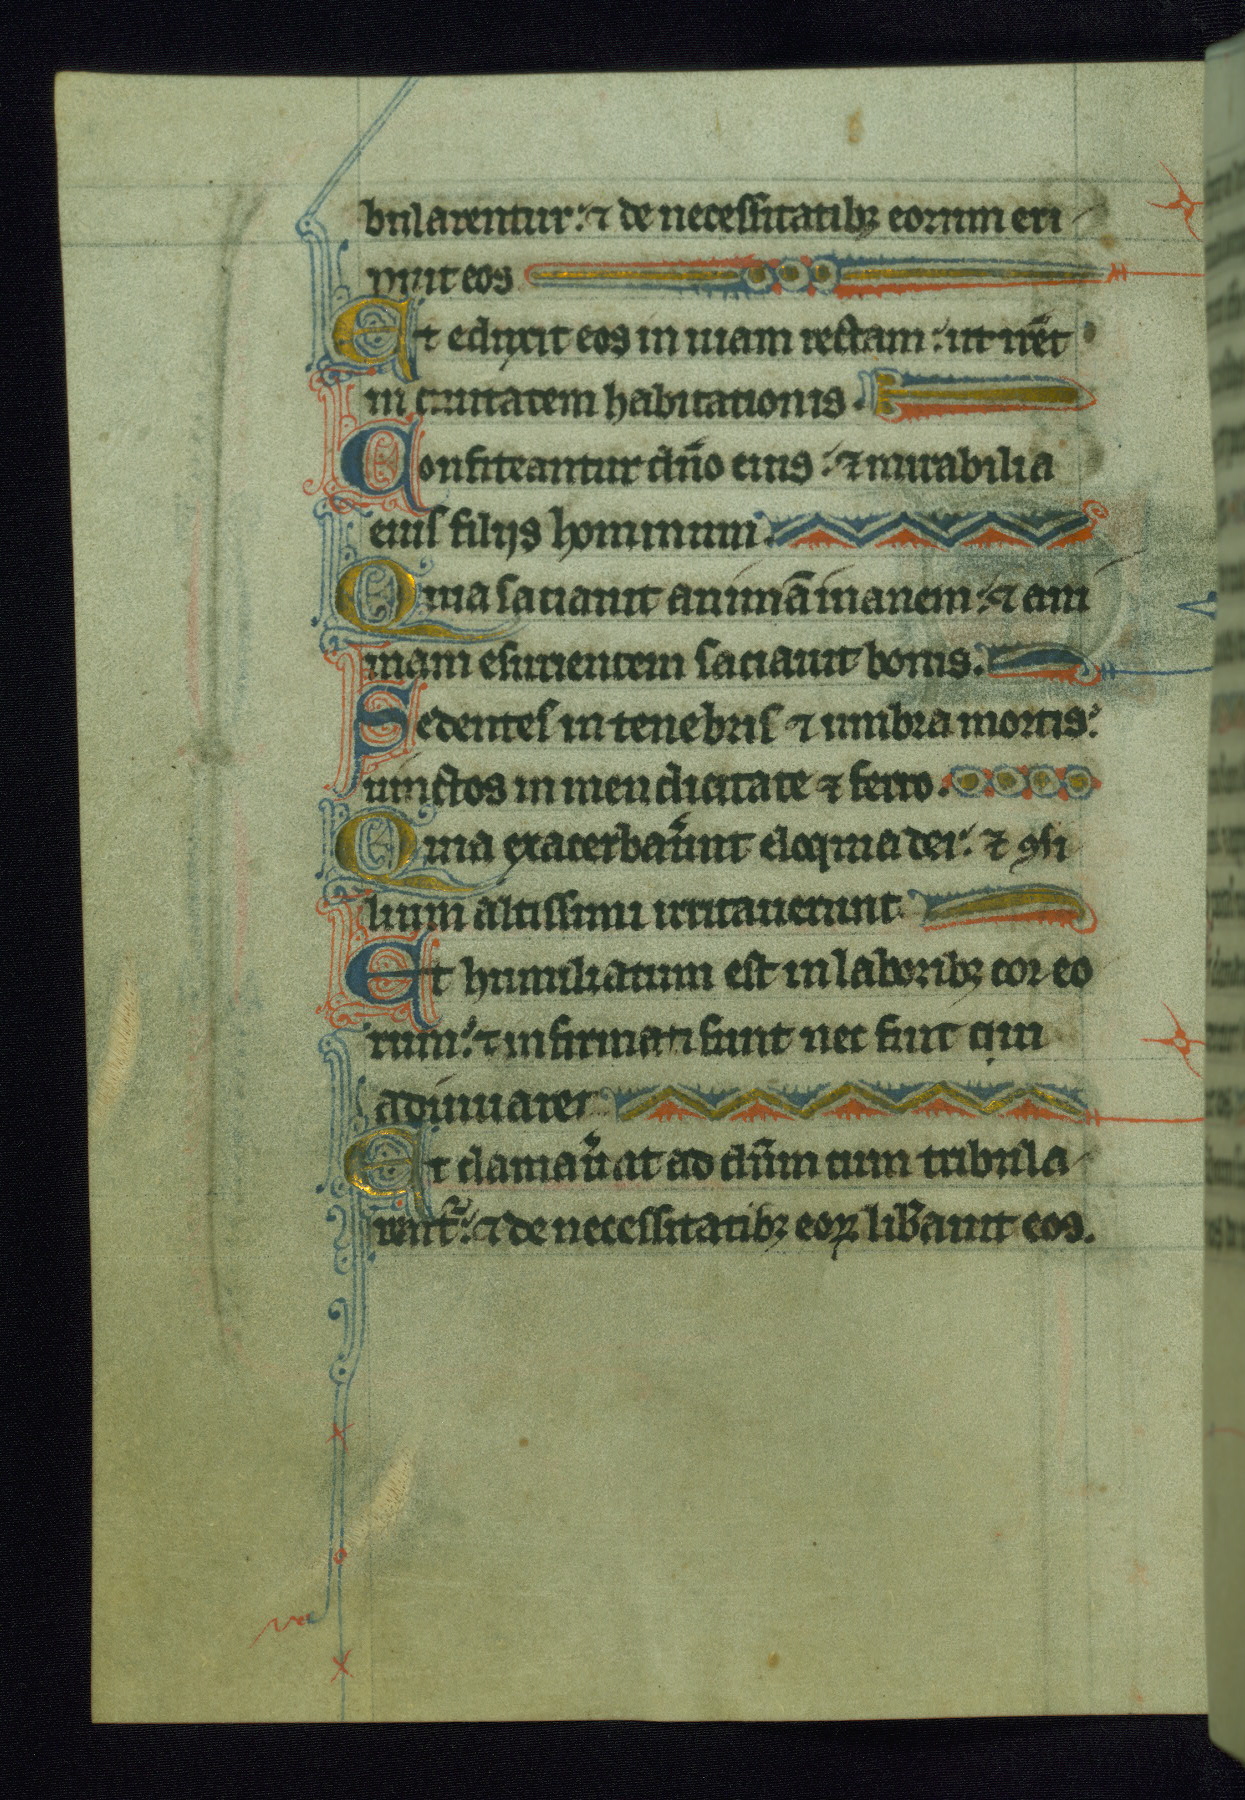 bularentur: ⁊ de necessitatibꝫ eorum eri
puit eos
Et eduxit eos in uiam rectam: ut ir̄et
in ciuitatem habitationis.
Confiteantur dn̄o eius: ⁊ mirabilia
eius filijs hominum.
Quia saciauit animā inanem: ⁊ ani
mam esurientem saciauit bonis.
Sedentes in tenebris ⁊ umbra mortis:
uinctos in mendicitate ⁊ ferro.
Quia exacerbauer̄unt eloquia dei: ⁊ ꝯsi
lium altissimi irritauerunt.
Et humiliatum est in laboribꝫ cor eo
rum: ⁊ infirmati sunt nec fuit qui
adiuuaret
Et clamauer̄at ad dn̄m cum tribula
: ⁊ de necessitatibꝫ eoꝝ lib̄auit eos.